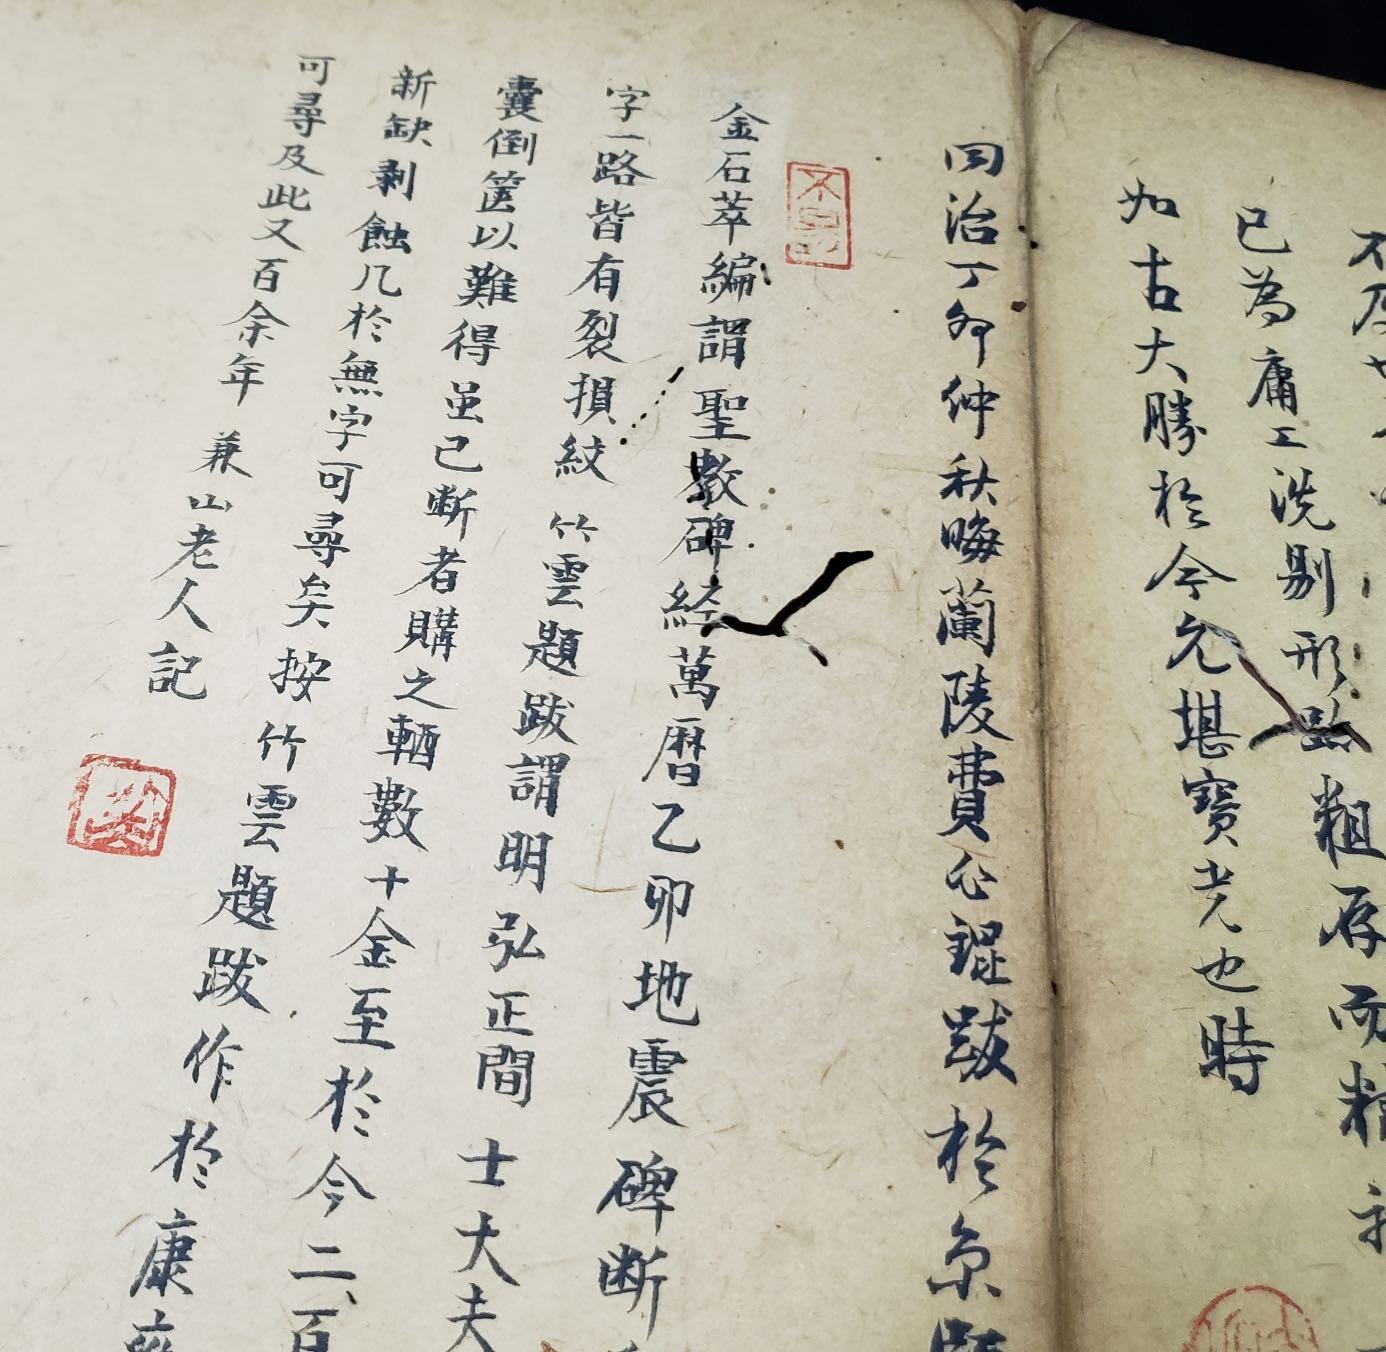 已為庸工洗剔形路粗存而精
如古大勝於今尤堪寶光也時
同治丁卯仲秋晦蘭陵費心錕跋於京
金石萃編謂聖教碑經萬曆乙卯地震碑斷
字一路皆有裂損紋 竹雲題跋謂明弘正間士大夫
囊倒篋以難得虽已斷者購之輒數十金至於今二百
新缺剥蝕几於無字可尋矣按竹雲題跋作於康
可尋及此又百余年 兼山老人記